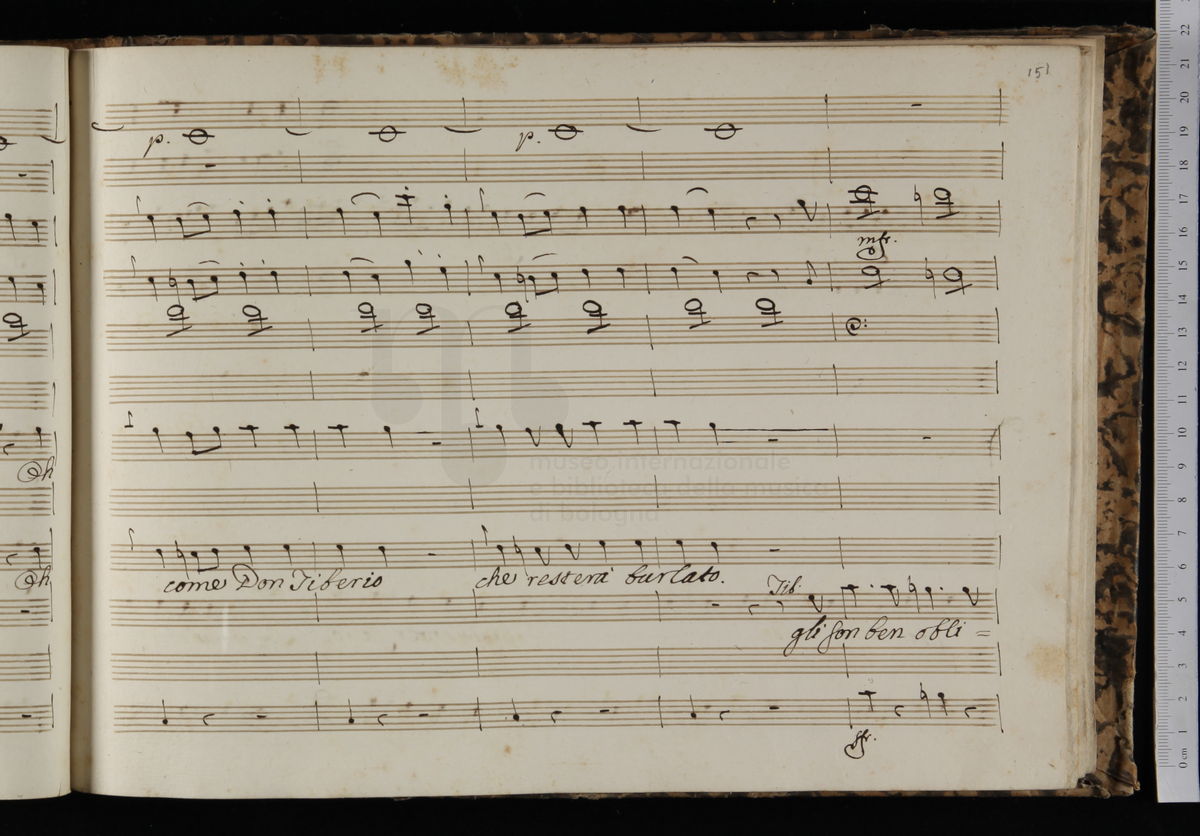 151
p.
p.
mfr.
Oh
Oh
come Don Tiberio
che resterà burlato.
Tib.
gli son ben obli =
sfr.
museo internazionale
e biblioteca della musica
di bologna
22
21
20
19
18
17
16
15
14
13
12
11
10
9
8
7
6
5
4
3
2
1
0 cm